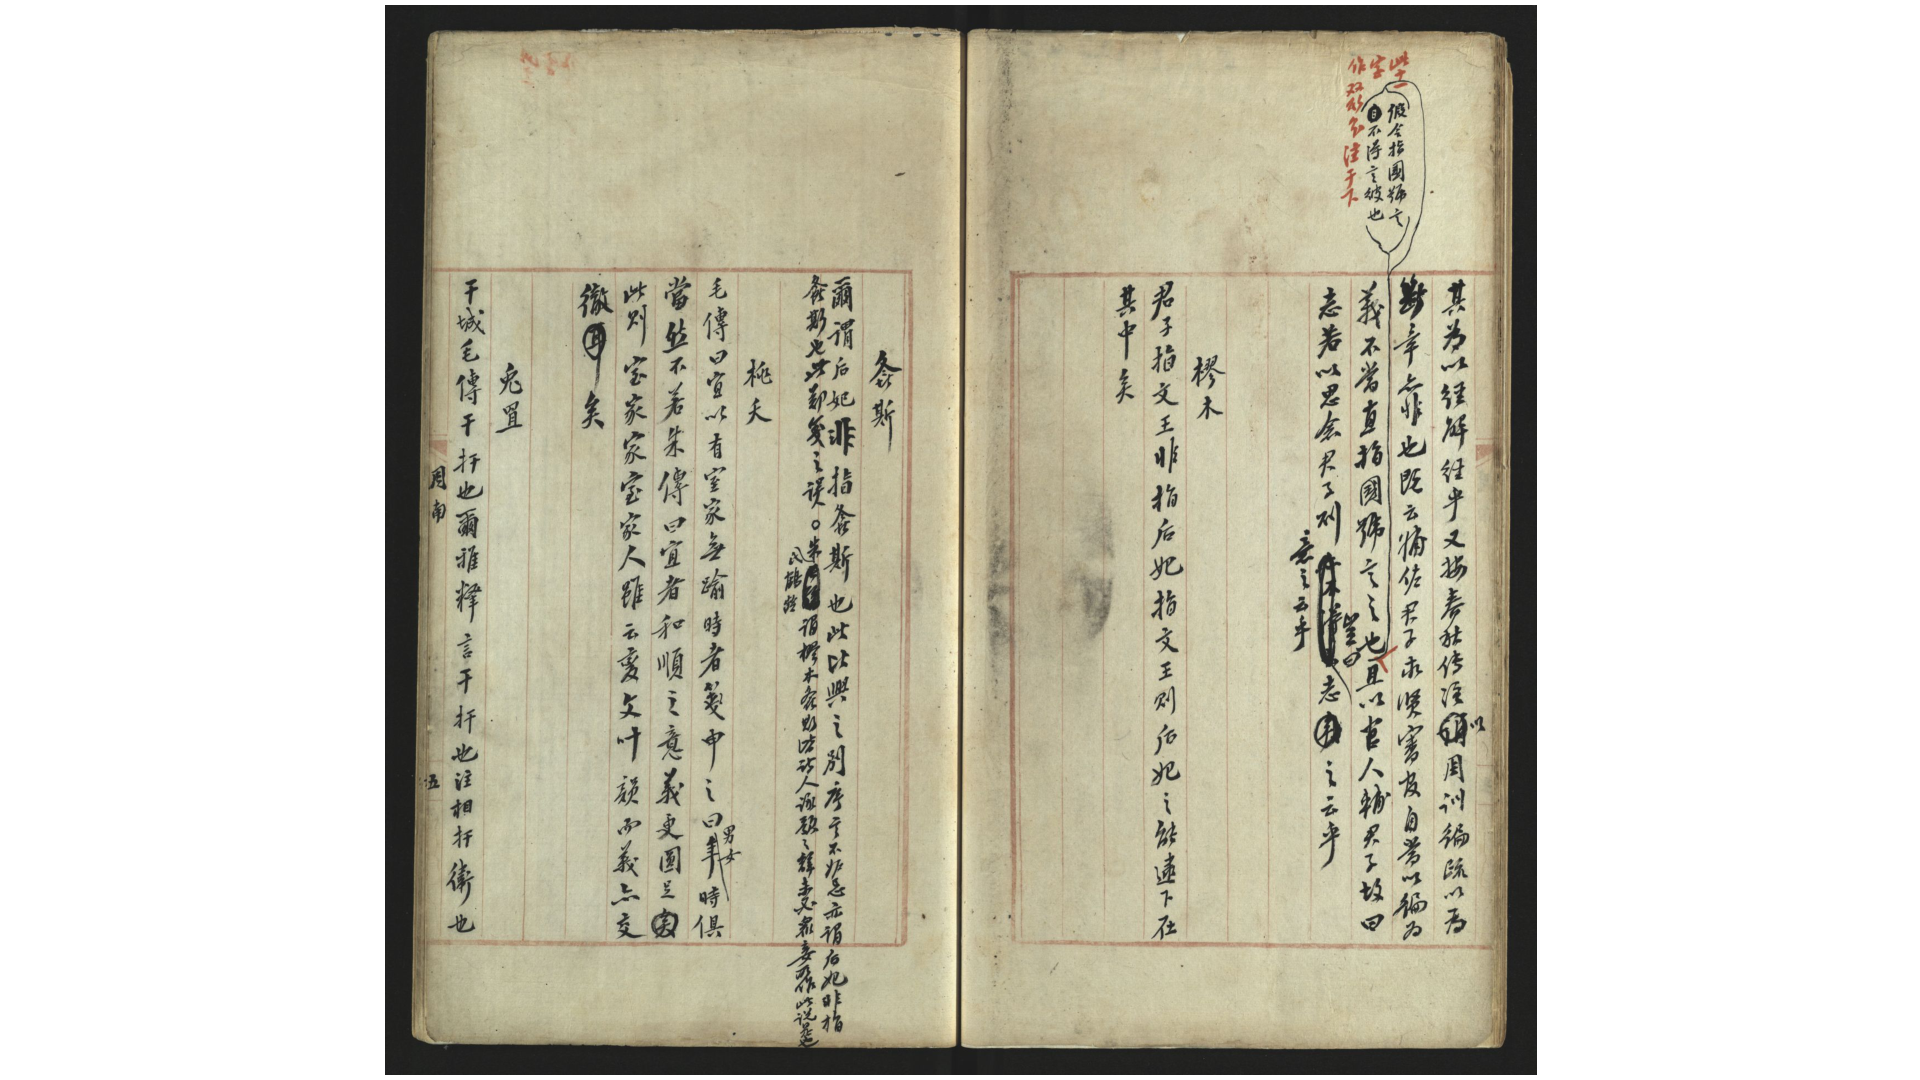 此十一
字
作双行分注于下
假令指國號言
不得言彼也
其為以經解經乎又按春秋傳注以周訓徧疏以為
斷章亦非也既云輔佐君子求賢審官自當以徧為
義不當直指國號言之也且以官人輔君子故曰
志若以思念君子則豈曰志之云乎
意之云乎
樛木
君子指文王非指后妃指文王則后妃之能逮下在
其中矣
螽斯
爾謂后妃非指螽斯也此比興之別序言不妒忌亦謂后妃非指
螽斯也此鄭箋之誤○朱氏謂樛木螽斯
桃夭
毛傳曰宜以有室家無踰時者箋申之曰男女年時俱
當然不若朱傳曰宜者和順之意義更圓足
此則室家家室家人雖云變文叶韻而義亦交
徹矣
兔罝
干城毛傳干扞也爾雅釋言干扞也注相扞衛也
周南
五